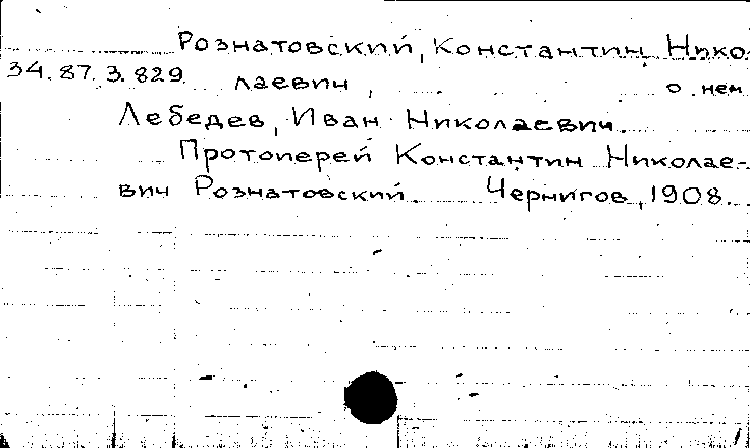 Рознатовский, Константин Нико
34.87.3.829 лаевич, о нем
Лебедев, Иван Николаевич.
Протоиерей Константин Николае-
вич Рознатовский. Чернигов, 1908.